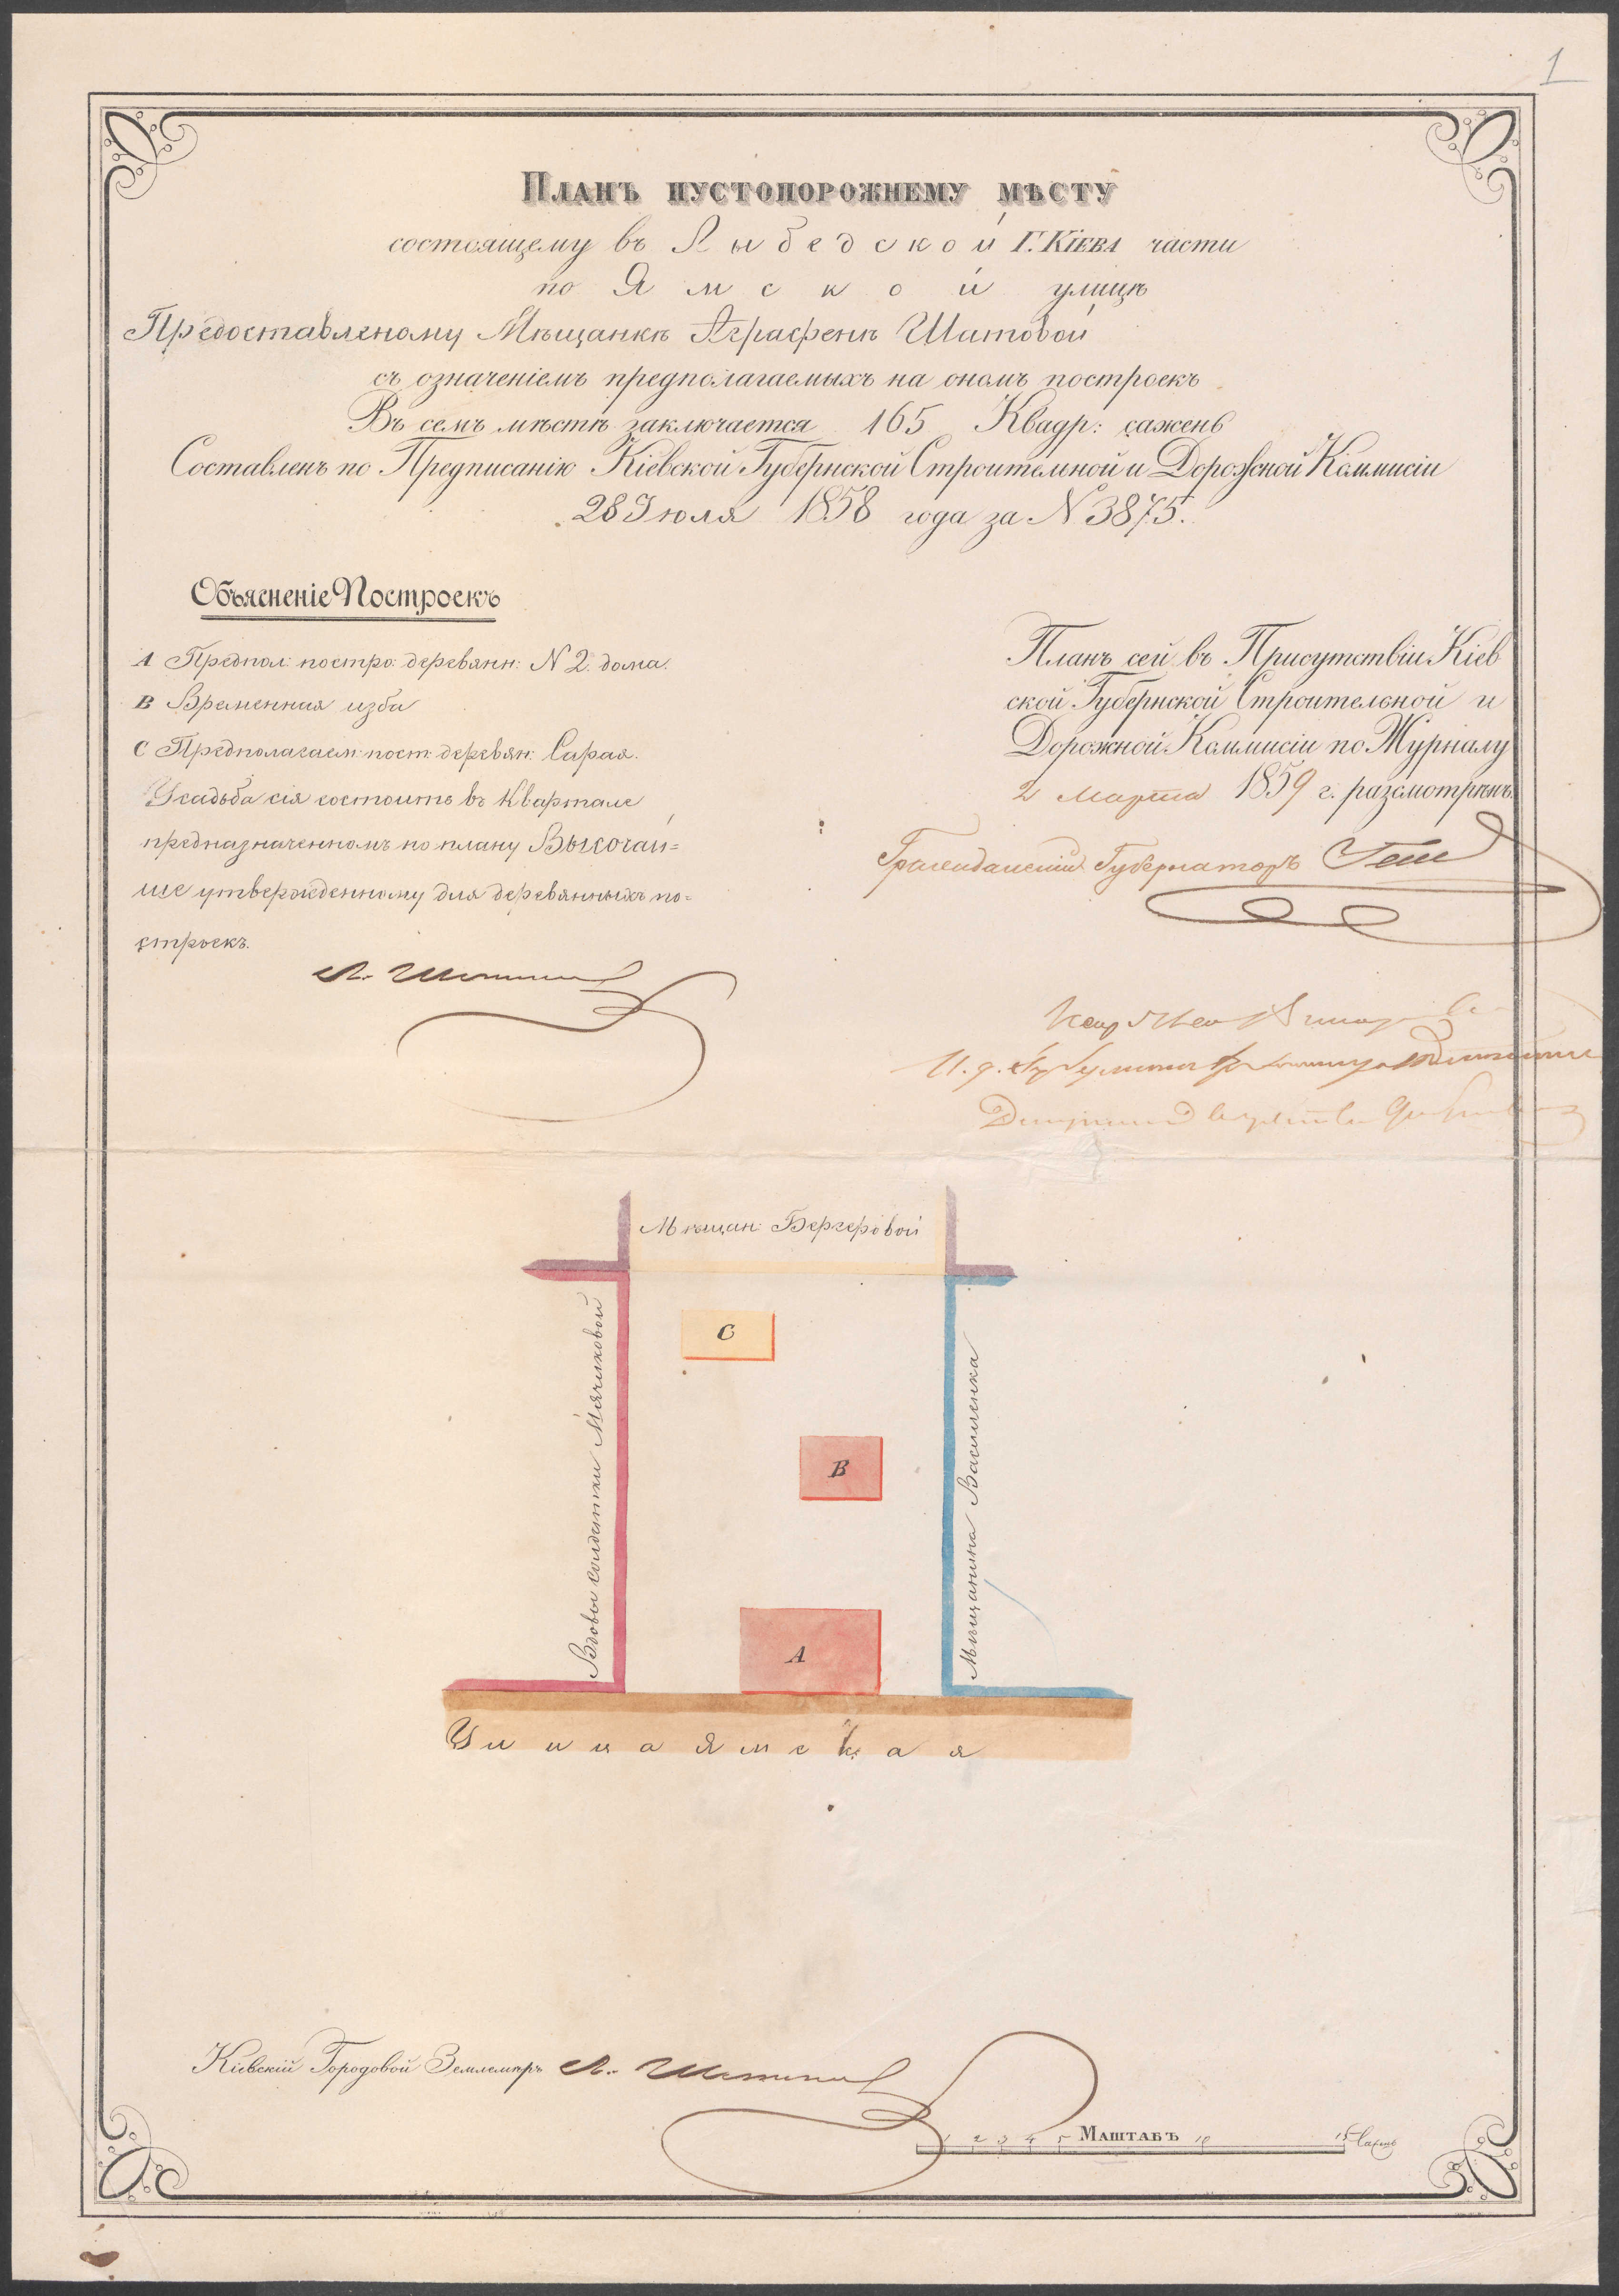 1
Планъ пустопорожнему мѣсту
состоящему въ Лыбедской Г. Кіева части
по Ямской улицѣ
Предоставленому Мѣщанкѣ Аграфенѣ Шатовой
съ означеніемъ предполагаемыхъ на ономъ построекъ
Въ семъ мѣстѣ заключается 165 Квадр: сажень
Составленъ по Предписанію Кіевской Губернской Строительной и Дорожной Коммисіи
28 Іюля 1858 года за N 3875.
Объясненіе Построекъ
A Предпол: постро: деревянн: N 2. дома.
B Временная изба
C Предполагаем: пост: деревян: Сарая.
Усадьба сія состоитъ въ Кварталѣ
предназначенномъ по плану Высочай=
ше утвержденному для деревянныхъ по=
строекъ.
Планъ сей въ Присутствіи Кіев
ской Губернской Строительной и
Дорожной Коммисіи по Журналу
2 Марта 1859 г. разсмотрѣнъ.
Гражданскій Губернаторъ Гессе
Мѣщан: Бергеровой
C
Вдовы солдатки Мячиковой
Мѣщанина Василенка
B
A
Улица Ямская
Кіевскій Городовой Землемѣръ
1 2 3 4 5 Маштабъ 10 15 Саж